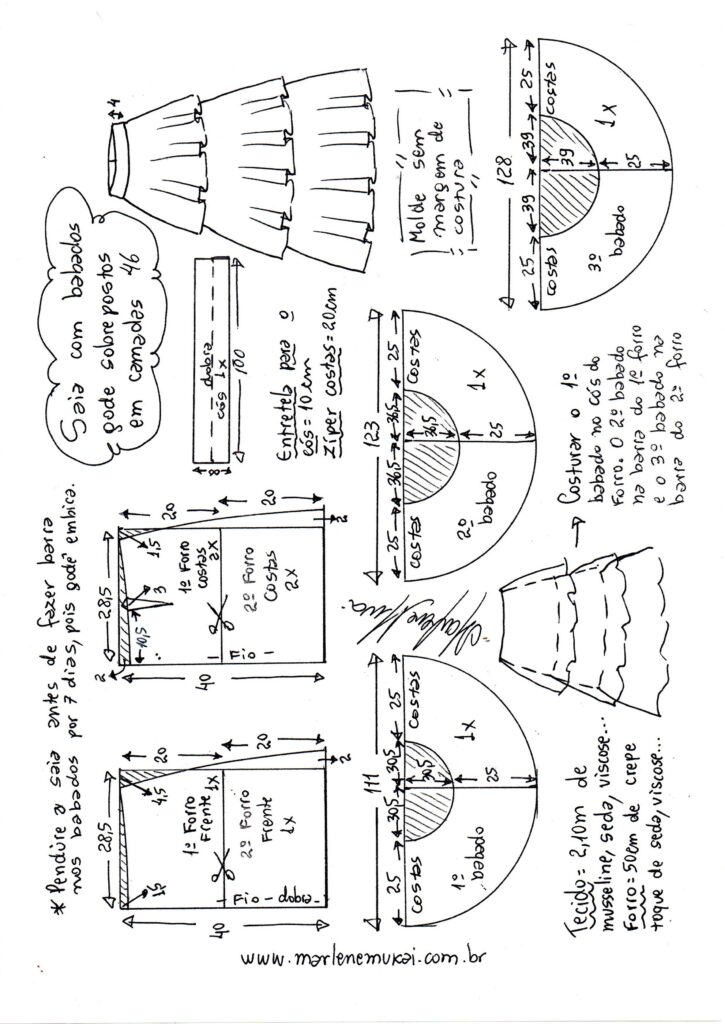 * Pendure a saia antes de fazer barra
nos babados por 7 dias, pois godê embira.
Saia com babados
gode sobrepostos
em camadas 46
4
28,5
1,5
4,5
20
20
40
2
1º Forro
Frente 1x
2º Forro
Frente
1x
Fio - dobra -
28,5
2
10,5
3
1,5
20
20
40
2
1º Forro
costas
2x
2º Forro
Costas
2x
- Fio -
dobra
cós 1x
8
100
Entretela para o
cós = 10 cm
Zíper costas = 20cm
Molde sem
margem de
costura
111
25
30,5
30,5
25
costas
costas
30,5
25
1º
babado
1x
123
25
36,5
36,5
25
costas
costas
36,5
25
2º
babado
1x
128
25
39
39
25
costas
costas
39
25
3º
babado
1x
Tecido = 2,10m de
musseline, seda, viscose...
Forro = 50cm de crepe
toque de seda, viscose...
Costurar o 1º
babado no cós do
Forro. O 2º babado
na barra do 1º forro
e o 3º babado na
barra do 2º forro
www.marlenemukai.com.br